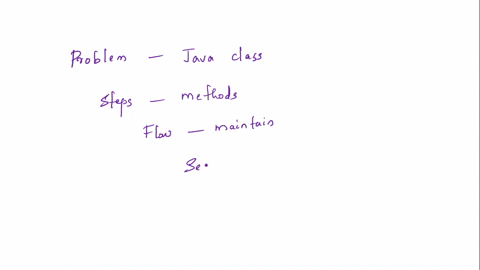 Problem — Java class
Steps — methods
Flow — maintain
Se